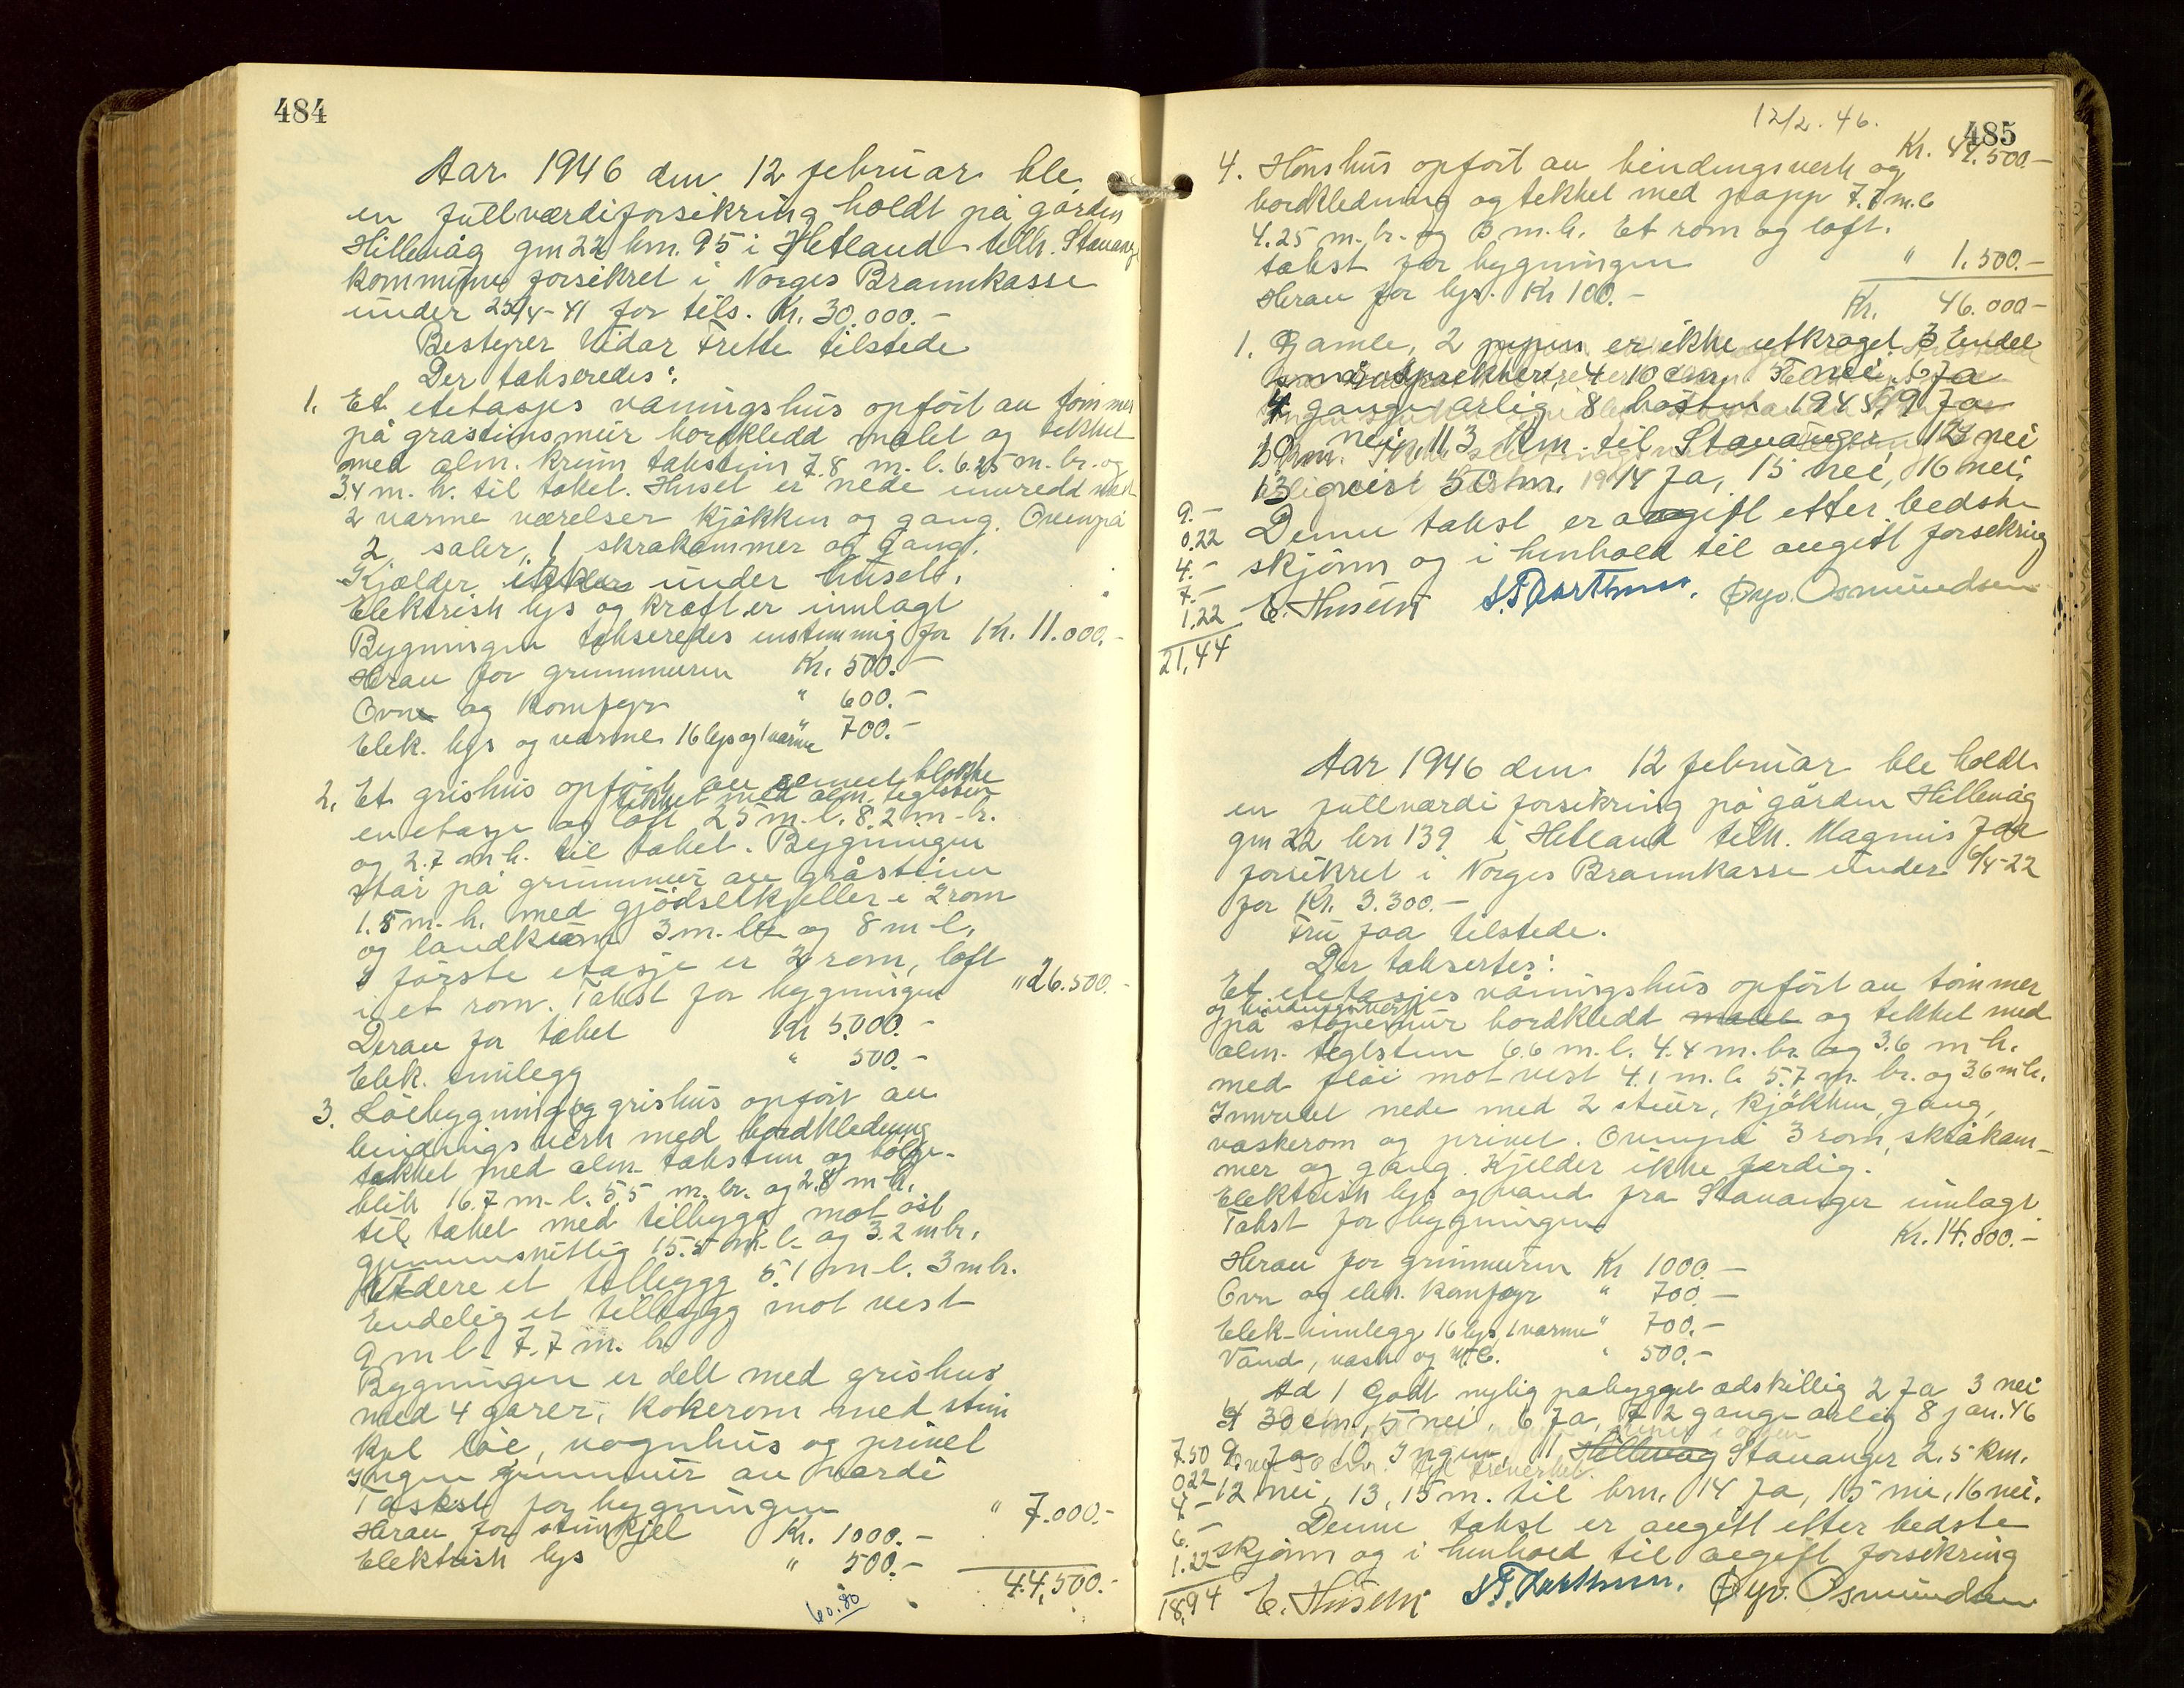 484
Aar 1946 den 12 februar ble
en fullværdiforsikring holdt på gården
Hillevåg gm 22 brn. 95 i Hetland tilh. Stavang
kommune forsikret i Norges Brannkasse
under 25/4-41 for tils. Kr. 30.000.-
Bestyrer Vidar Frette tilstede
Der takseredes:
1. Et etetasjes våningshus opført av tømmer
på gråstinsmur bordkledd malet og tekket
med alm. krum takstein 7.8 m.l. 6.25 m.br. og
3.4 m.h. til taket. Huset er nede innredd med
2 varme værelser kjøkken og gang. Ovenpå
2 saler, 1 skråkammer og gang.
Kjælder ikke under huset.
Elektrisk lys og kraft er innlagt
Bygningen takseredes enstemmig for Kr. 11.000.-
Herav for grunnmuren Kr. 500.-
Ovn og komfyr " 600.-
Elek. lys og varme 16 lys og 1 varme " 700.-
2. Et grishus opført av cement blokke
tekket med alm. teglstein
en etasje og loft 25 m.l. 8.2 m.br.
og 2.7 m.h. til taket. Bygningen
står på grunnmur av gråstein
1.8 m.h. med gjødselkjeller i 2 rom
og landkum 3 m. br og 8 m l.
I første etasje er 2 rom, loft
i et rom. Takst for bygningen " 26.500.-
Derav for taket Kr 5.000.-
Elek. innlegg " 500.-
3. Løebygning og grishus opført av
bindingsverk med bordkledning
tekket med alm takstein og bølge-
blik 16.7 m.l. 5.5 m. br. og 2.8 m.h.
til taket med tilbygg mot øst
gjennemsnitlig 15.5 m.l. og 3.2 m br.
Videre et tilbygg 5.1 m l. 3 m br.
Endelig et tilbygg mot vest
9 m l. 7.7 m. br
Bygningen er delt med grishus
med 4 garer, kokerom med stim
kjel løe, vognhus og privet
Ingen grunnmur av værdi
Takst for bygningen " 7.000.-
Herav for stimkjel Kr. 1000.-
Elektrisk lys " 500.-
44,500.-
60.80
12/2. 46.
485
Kr. 44.500.-
4. Hønshus opført av bindingsverk og
bordkledning og tekket med papp 7.7 m.l
4.25 m.br. og 3 m.h. Et rom og loft.
takst for bygningen " 1.500.-
Herav for lys. Kr 100.-
Kr. 46.000-
1. Gamle, 2 pipen er ikke utkraget, 3 Endel
småsprekker, 4 10 cm 5 nei, 6 Ja
7 4 gange årlig 8 høsten 1945, 9 Ja
10 nei, 11 3 km. til Stavanger 12 nei
13 50 m. 14 Ja, 15 nei, 16 nei.
Denne takst er avgitt etter bedste
skjønn og i henhold til avgitt forsikring
E. Husebø Øyv. Osmundsen
9.-
0.22
4.-
7.-
1.22
21,44
Aar 1946 den 12 februar ble holdt
en fullværdi forsikring på gården Hillevåg
gm 22 brn 139 i Hetland tilh. Magnus Jaa
forsikret i Norges Brannkasse under 6/4-22
for Kr. 3.300.-
Fru Jaa tilstede.
Der taksertes:
Et etetasjes våningshus opført av tømmer
og bindingsverk
på støpemur bordkledd malet og tekket med
alm. teglstein 6.6 m.l. 4.4 m.br. og 3.6 m h.
med fløi mot vest 4.1 m.l. 5.7 m. br. og 3.6 m h.
Innredet nede med 2 stuer, kjøkken, gang,
vaskerom og privet. Ovenpå 3 rom, skråkam-
mer og gang. Kjelder ikke ferdig.
Elektrisk lys og vand fra Stavanger innlagt
Takst for bygningen Kr. 14.000.-
Herav for grunnmuren Kr 1000.-
Ovn og elek. komfyr " 700.-
Elek-innlegg 16 lys, 1 varme " 700.-
Vand, vask og W.C. " 500.-
Ad 1 Godt nylig påbygget adskillig 2 Ja 3 nei
4 30 cm, 5 nei, 6 Ja, 7 2 gange årlig 8 jan. 46
9. Ja 10 Ingen, 11 Hillevåg Stavanger 2.5 km.
12 nei, 13, 15 m. til brn. 14 Ja, 15 nei, 16 nei.
Denne takst er avgitt efter bedste
skjønn og i henhold til avgitt forsikring
E. Husebø Øyv. Osmundsen
7.50
0.22
4.-
6.-
1.22
18,94